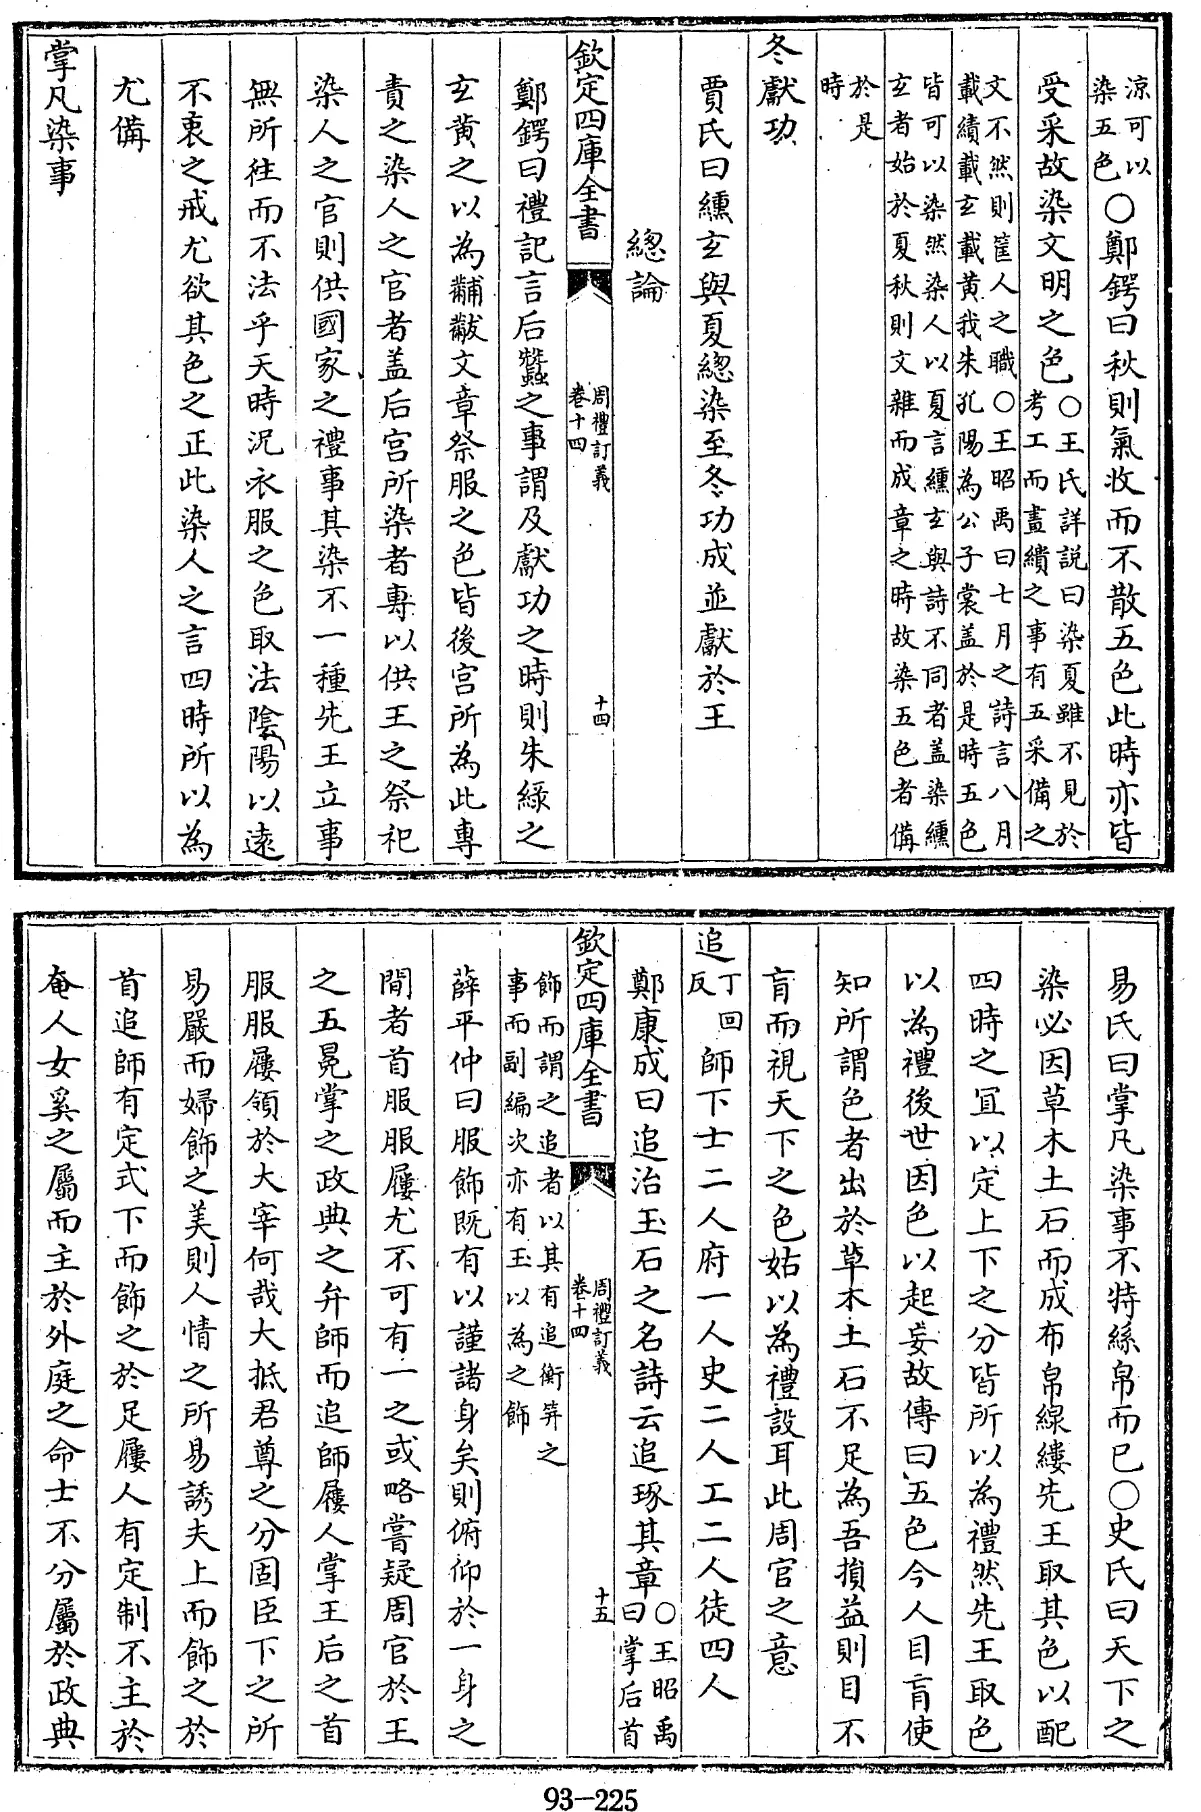 涼可以
染五色○鄭鍔曰秋則氣收而不散五色此時亦皆
受采故染文明之色○王氏詳說曰染夏雖不見於
考工而畫繢之事有五采備之
文不然則筐人之職○王昭禹曰七月之詩言八月
載績載玄載黄我朱孔陽為公子裳盖於是時五色
皆可以染然染人以夏言纁玄與詩不同者盖染纁
玄者始於夏秋則文雜而成章之時故染五色者備
於是
時
冬獻功
賈氏曰纁玄與夏總染至冬功成並獻於王
總論
欽定四庫全書
周禮訂義
卷十四
十四
鄭鍔曰禮記言后蠶之事謂及獻功之時則朱緑之
玄黄之以為黼黻文章祭服之色皆後宫所為此專
責之染人之官者盖后宫所染者專以供王之祭祀
染人之官則供國家之禮事其染不一種先王立事
無所往而不法乎天時況衣服之色取法陰陽以逺
不衷之戒尤欲其色之正此染人之言四時所以為
尤備
掌凡染事
易氏曰掌凡染事不特絲帛而已○史氏曰天下之
染必因草木土石而成布帛線縷先王取其色以配
四時之宜以定上下之分皆所以為禮然先王取色
以為禮後世因色以起妄故傳曰五色令人目盲使
知所謂色者出於草木土石不足為吾損益則目不
盲而視天下之色姑以為禮設耳此周官之意
追丁回
反師下士二人府一人史二人工二人徒四人
鄭康成曰追治玉石之名詩云追琢其章○王昭禹
曰掌后首
欽定四庫全書
周禮訂義
卷十四
十五
飾而謂之追者以其有追衡笄之
事而副編次亦有玉以為之飾
薛平仲曰服飾既有以謹諸身矣則俯仰於一身之
間者首服服屨尤不可有一之或略嘗疑周官於王
之五冕掌之政典之弁師而追師屨人掌王后之首
服服屨領於大宰何哉大抵君尊之分固臣下之所
易嚴而婦飾之美則人情之所易誘夫上而飾之於
首追師有定式下而飾之於足屨人有定制不主於
奄人女奚之屬而主於外庭之命士不分屬於政典
93-225